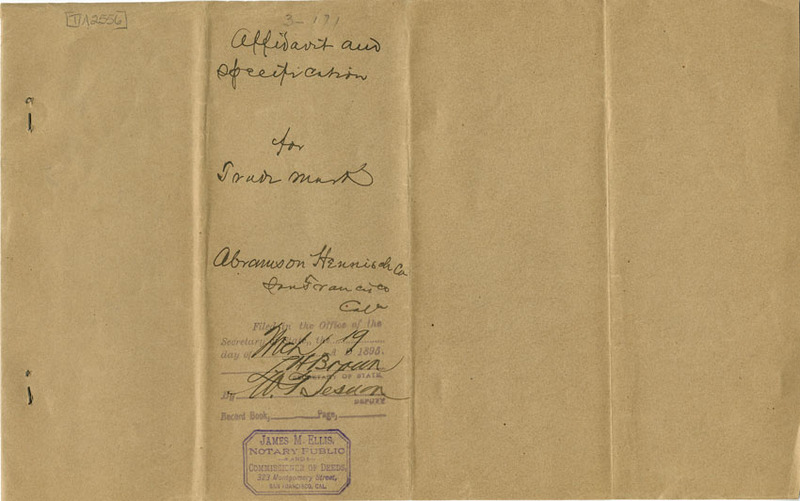 [TM2556]
3-171
Affidavit and
specification
for
Trade mark
Abramson Hennisch Co
San Francisco
Cal
Filed in the Office of the
Secretary of State, the 19
day of Mch A D 1895.
L H Brown
SECRETARY OF STATE.
By W. T. Sesnon
DEPUTY
Record Book, Page,
JAMES M. ELLIS,
NOTARY PUBLIC
AND
COMMISSIONER OF DEEDS,
323 Montgomery Street,
SAN FRANCISCO, CAL.